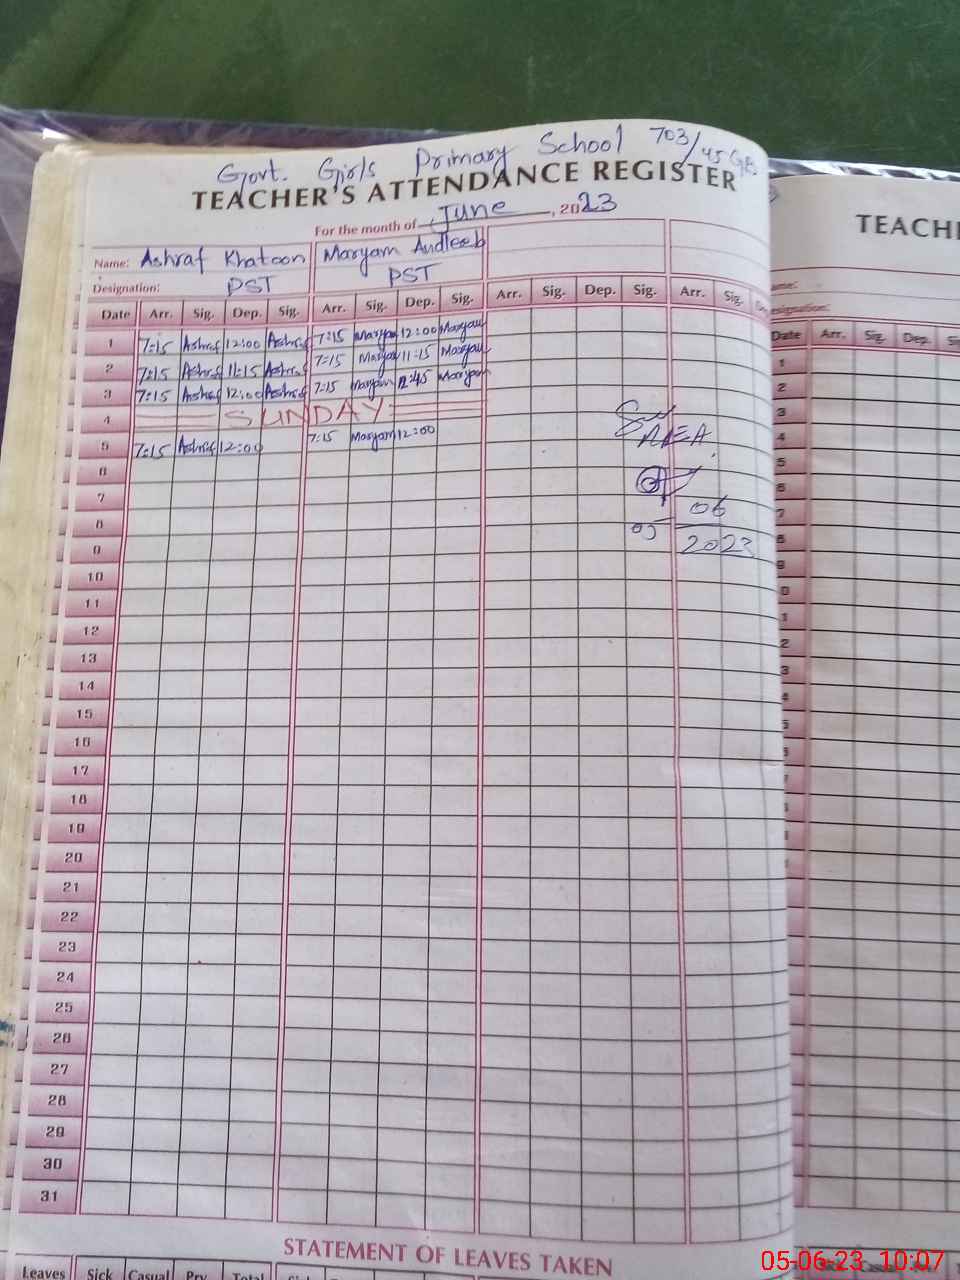 Govt. Girls Primary School 703/45 GB
TEACHER'S ATTENDANCE REGISTER
For the month of June, 2023
Name: Ashraf Khatoon Maryam Andleeb
Designation: PST PST
Date Arr. Sig. Dep. Sig. Arr. Sig. Dep. Sig. Arr. Sig. Dep. Sig. Arr. Sig.
1 7:15 Ashraf 12:00 Ashraf 7:15 Maryam 12:00 Maryam
2 7:15 Ashraf 11:15 Ashraf 7:15 Maryam 11:15 Maryam
3 7:15 Ashraf 12:00 Ashraf 7:15 Maryam Maryam
4 SUNDAY
5 7:15 Ashraf 12:00 7:15 Maryam 12:00
AEA
6
7
05 06
8
2023
9
10
11
12
13
14
15
16
17
18
19
20
21
22
23
24
25
26
27
28
29
30
31
STATEMENT OF LEAVES TAKEN
Leaves Sick Casual Prv. Total
TEACH
Date Arr. Sig. Dep.
1
2
3
4
5
6
7
8
9
05-06-23 10:07